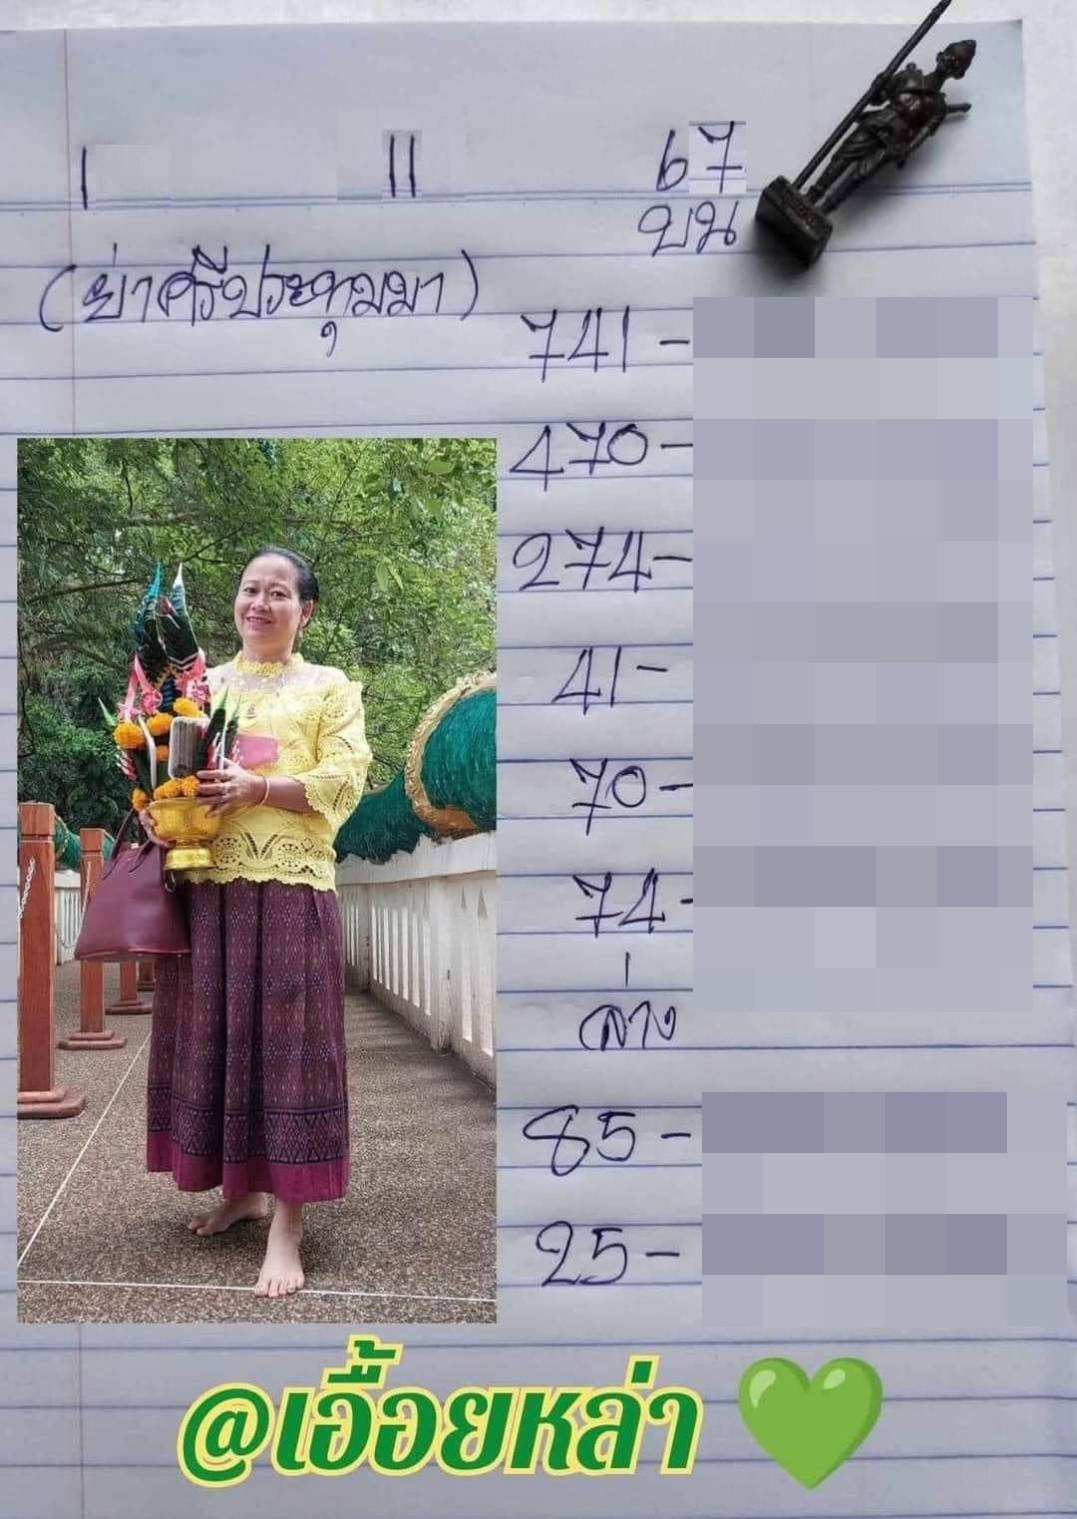 1 11 67
บน
(ย่าศรีประทุมมา)
741 -
470 -
274 -
41 -
70 -
74 -
ล่าง
85 -
25 -
@เอื้อยหล่า